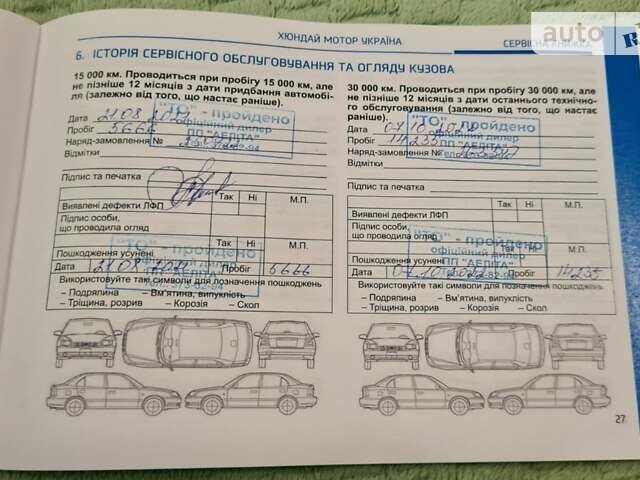 ХЮНДАЙ МОТОР УКРАЇНА
СЕРВІСНА КНИЖКА
auto
6. ІСТОРІЯ СЕРВІСНОГО ОБСЛУГОВУВАННЯ ТА ОГЛЯДУ КУЗОВА
15 000 км. Проводиться при пробігу 15 000 км, але
не пізніше 12 місяців з дати придбання автомобі-
ля (залежно від того, що настає
раніше).
"ТО" - пройдено
офіційний дилер
ПП "АЕЛІТА"
Дата 21.08
Пробіг 5666
Наряд-замовлення №
Відмітки
Підпис та печатка
Так Ні М.П.
Виявлені дефекти ЛФП
Підпис особи,
що проводила огляд
Так Ні М.П.
"ТО" - пройдено
офіційний дилер
ПП "АЕЛІТА"
Пошкодження усунені
Дата 21.08 Пробіг 5666
Використовуйте такі символи для позначення пошкоджень
– Подряпина – Вм'ятина, випуклість
– Тріщина, розрив – Корозія – Скол
30 000 км. Проводиться при пробігу 30 000 км, але
не пізніше 12 місяців з дати останнього технічно-
го обслуговування (залежно від того, що настає
раніше).
"ТО" - пройдено
офіційний дилер
ПП "АЕЛІТА"
Дата 07.10
Пробіг 14235
Наряд-замовлення №
Відмітки
Підпис та печатка
Так Ні М.П.
Виявлені дефекти ЛФП
Підпис особи,
що проводила огляд
Так Ні М.П.
"ТО" - пройдено
офіційний дилер
ПП "АЕЛІТА"
Пошкодження усунені
Дата 07.10.2022 Пробіг 14235
Використовуйте такі символи для позначення пошкоджень
– Подряпина – Вм'ятина, випуклість
– Тріщина, розрив – Корозія – Скол
27